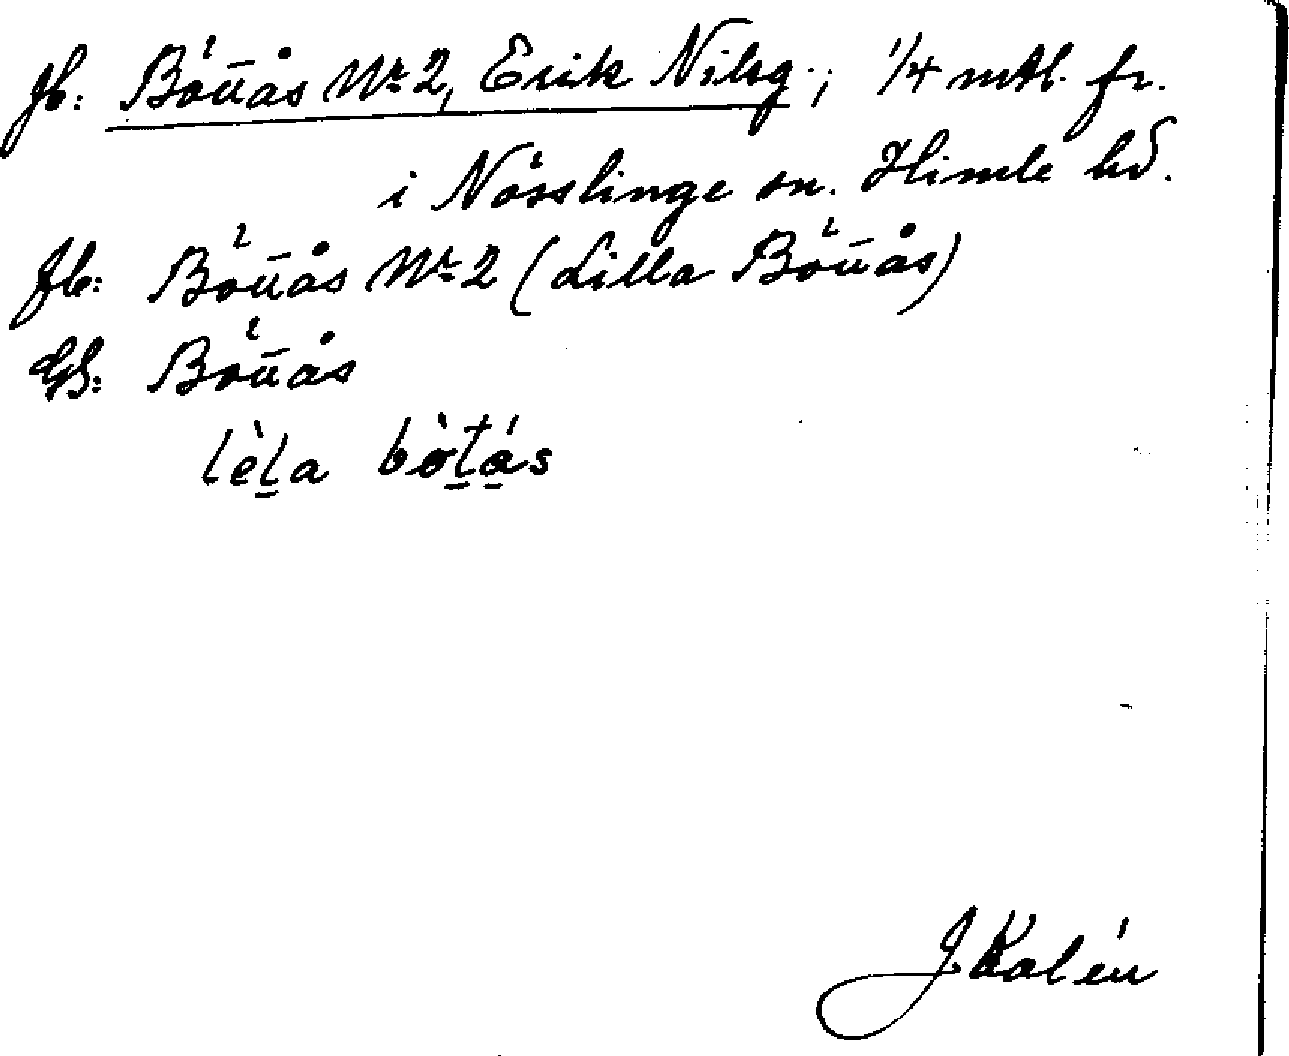 Jb: Böttås Nr 2, Erik Nilsg.; 1/4 mtl. fr.
i Nösslinge sn. Himle hd.
Jb: Böttås Nr 2 (Lilla Böttås)
GS: Böttås
lèḻa bò̱ṯás
J. Kalén